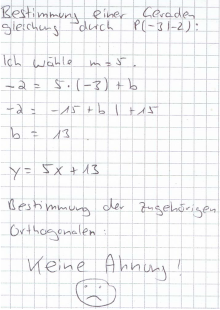 Bestimmung einer Geraden
gleichung durch P(-3|-2):
Ich wähle m=5.
-2 = 5·(-3) + b
-2 = -15 + b | +15
b = 13
y = 5x + 13
Bestimmung der zugehörigen
Orthogonalen:
Keine Ahnung!